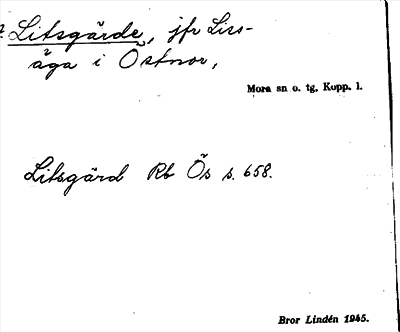 Litsgärde, jfr Liss-
äga i Östnor,
Mora sn o. tg, Kopp. l.
Litsgärd Rb Ös s. 658.
Bror Lindén 1945.